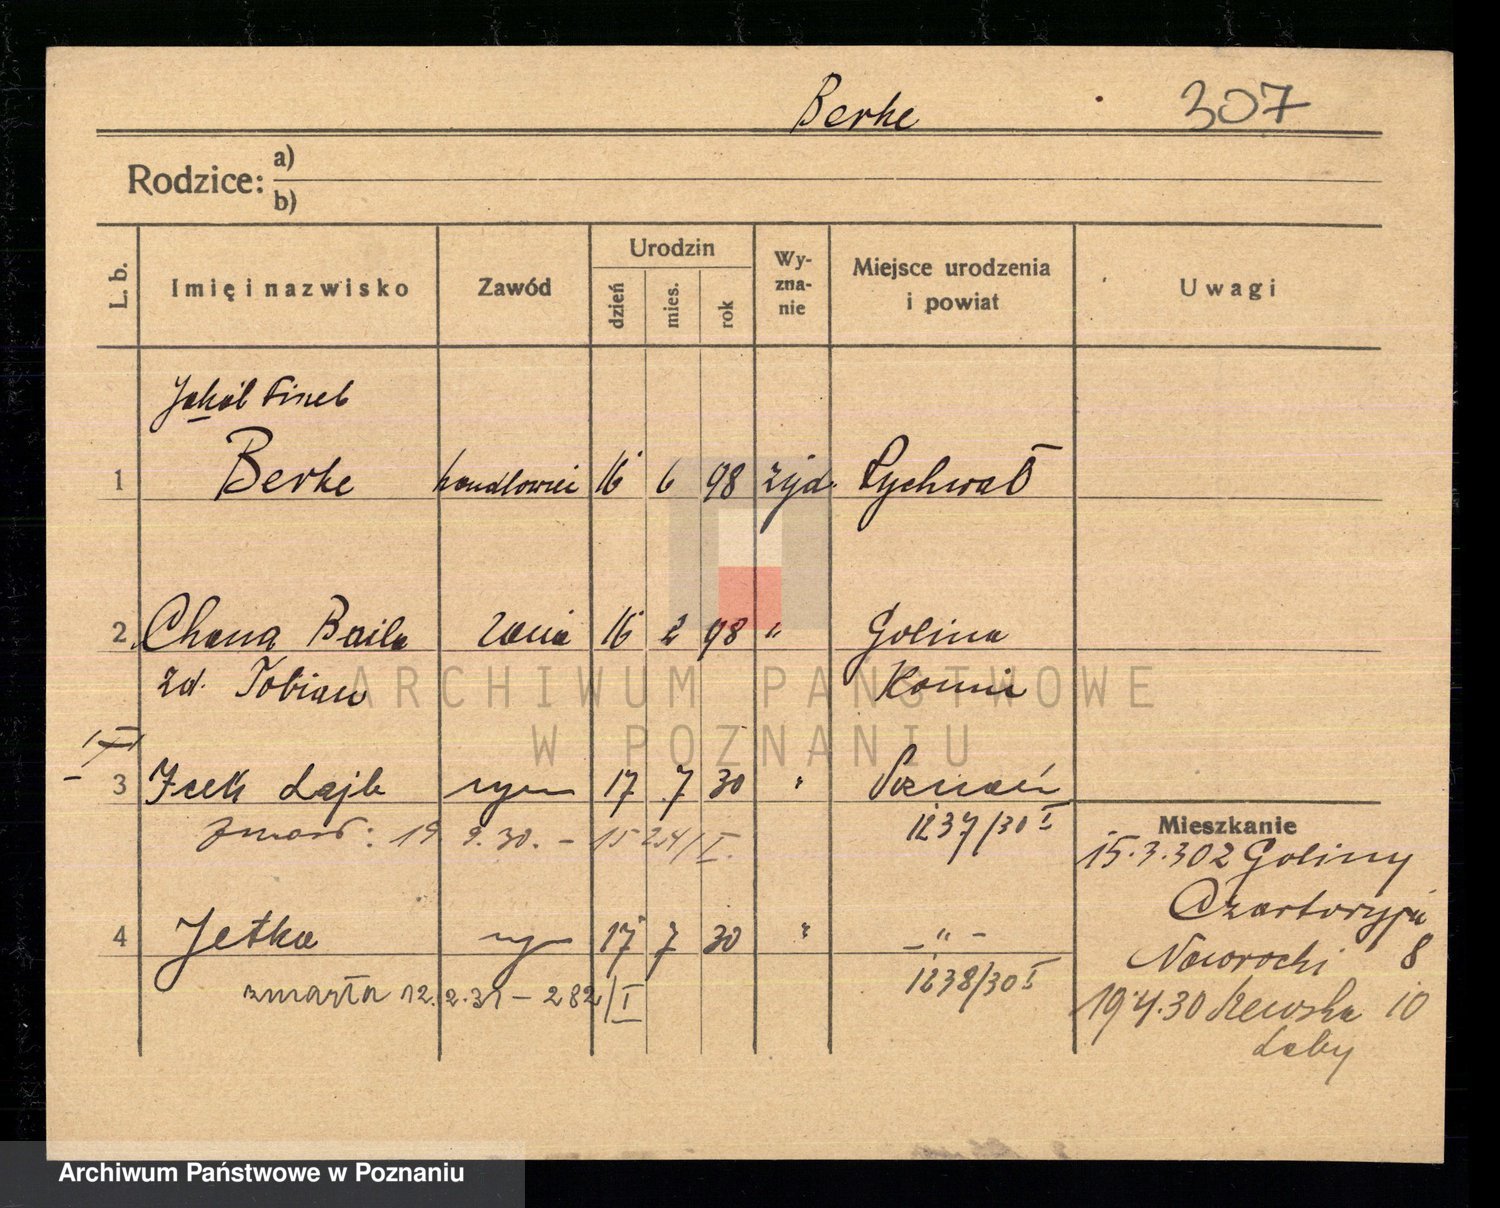 Berke 307
Rodzice: a)
b)
L. b. Imię i nazwisko Zawód Urodzin dzień mies. rok Wy-zna-nie Miejsce urodzenia i powiat Uwagi
Jakób
1 Berke handlowiec 16 6 98 żyd. Rychwał
2 Chana Baila żona 16 2 98 " Golina
zd. Tobian Konin
3 Icek Lajb syn 17 7 30 " Poznań
zmarł: 19. 9. 30. – 1237/30 I
Mieszkanie
15.3.30 z Goliny
4 Jetka 17 7 30 " – " –
zmarła 12.2.31 – 282/I 1238/30 I
8
19.4.30 10
ARCHIWUM PAŃSTWOWE
W POZNANIU
Archiwum Państwowe w Poznaniu